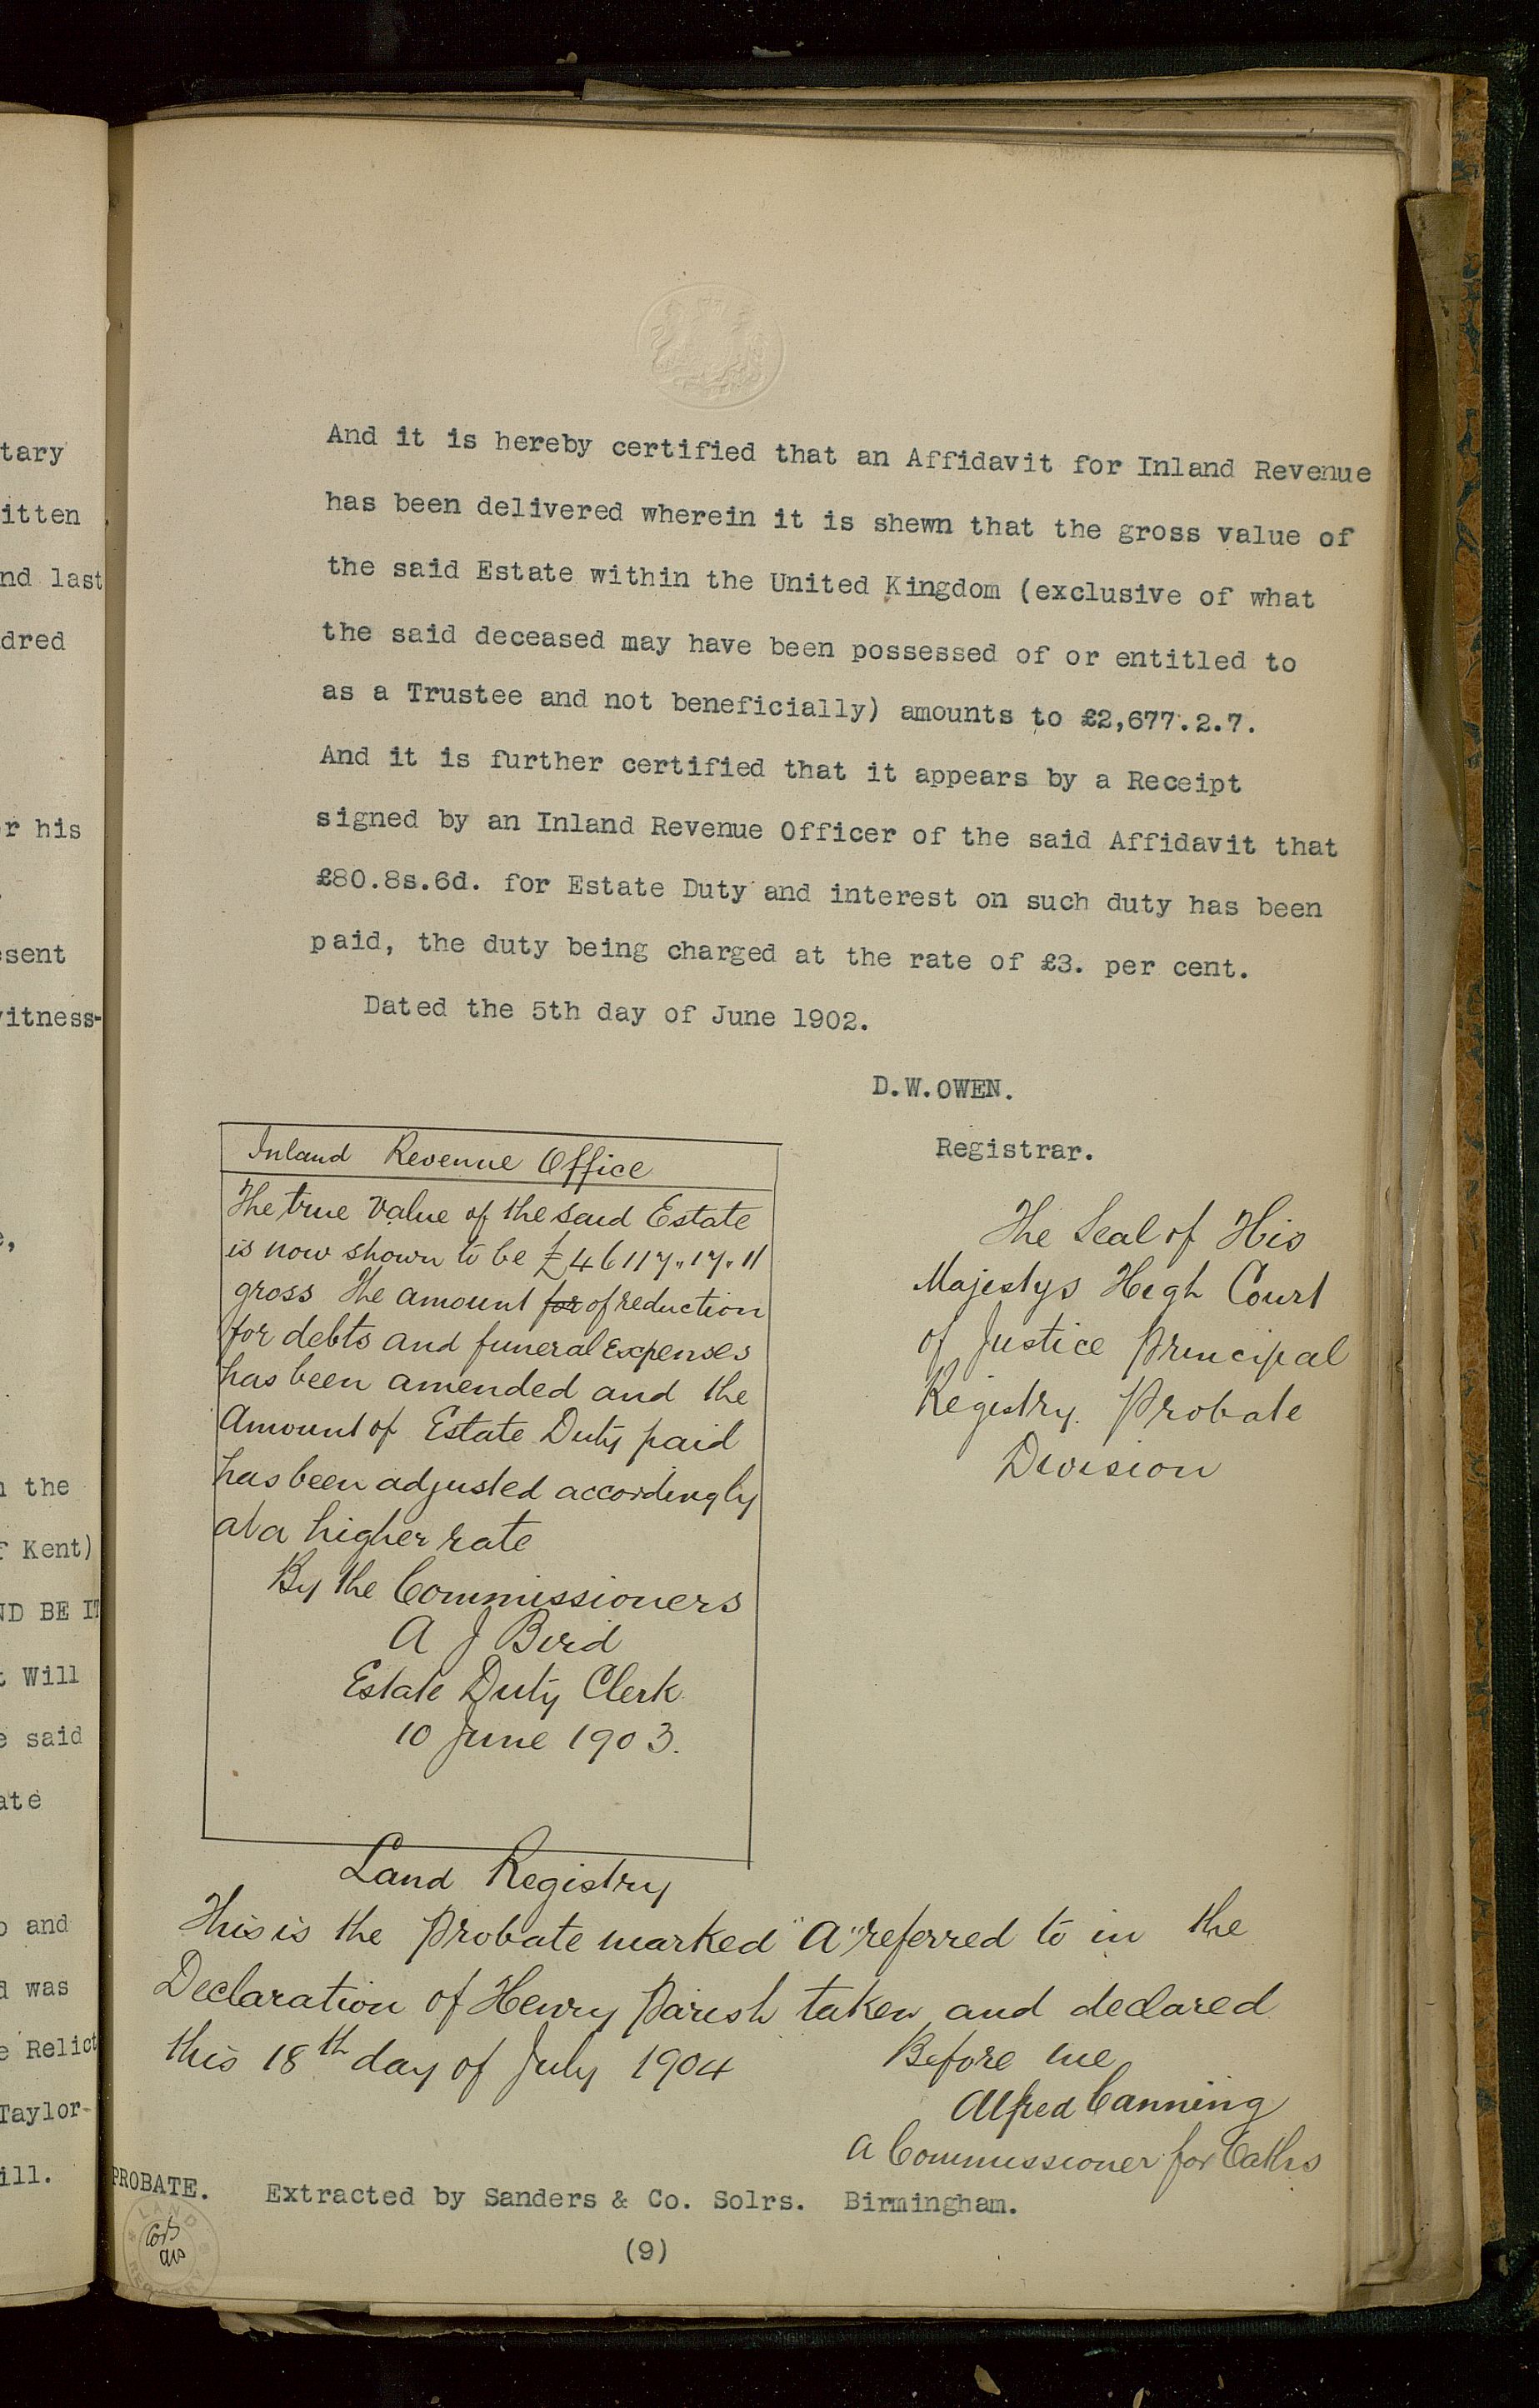 tary
itten
nd last
dred
r his
esent
witness-
n the
f Kent)
ND BE IT
t Will
e said
ate
o and
d was
e Relict
Taylor-
ill.
And it is hereby certified that an Affidavit for Inland Revenue
has been delivered wherein it is shewn that the gross value of
the said Estate within the United Kingdom (exclusive of what
the said deceased may have been possessed of or entitled to
as a Trustee and not beneficially) amounts to £2,677.2.7.
And it is further certified that it appears by a Receipt
signed by an Inland Revenue Officer of the said Affidavit that
£80.8s.6d. for Estate Duty and interest on such duty has been
paid, the duty being charged at the rate of £3. per cent.
Dated the 5th day of June 1902.
D.W.OWEN.
Registrar.
Inland Revenue Office
The true value of the said Estate
is now shown to be £46117"17"11
gross The amount for of reduction
for debts and funeral expenses
has been amended and the
Amount of Estate Duty paid
has been adjusted accordingly
at a higher rate
By the Commissioners
A J Bird
Estate Duty Clerk
10 June 1903.
The Seal of His
Majestys High Court
of Justice Principal
Registry. Probate
Division
Land Registry
This is the Probate marked "A" referred to in the
Declaration of Henry Parish taken and declared
this 18th day of July 1904
Before me
Alfred Canning
A Commissioner for Oaths
PROBATE. Extracted by Sanders & Co. Solrs. Birmingham.
LAND
REGISTRY
(9)